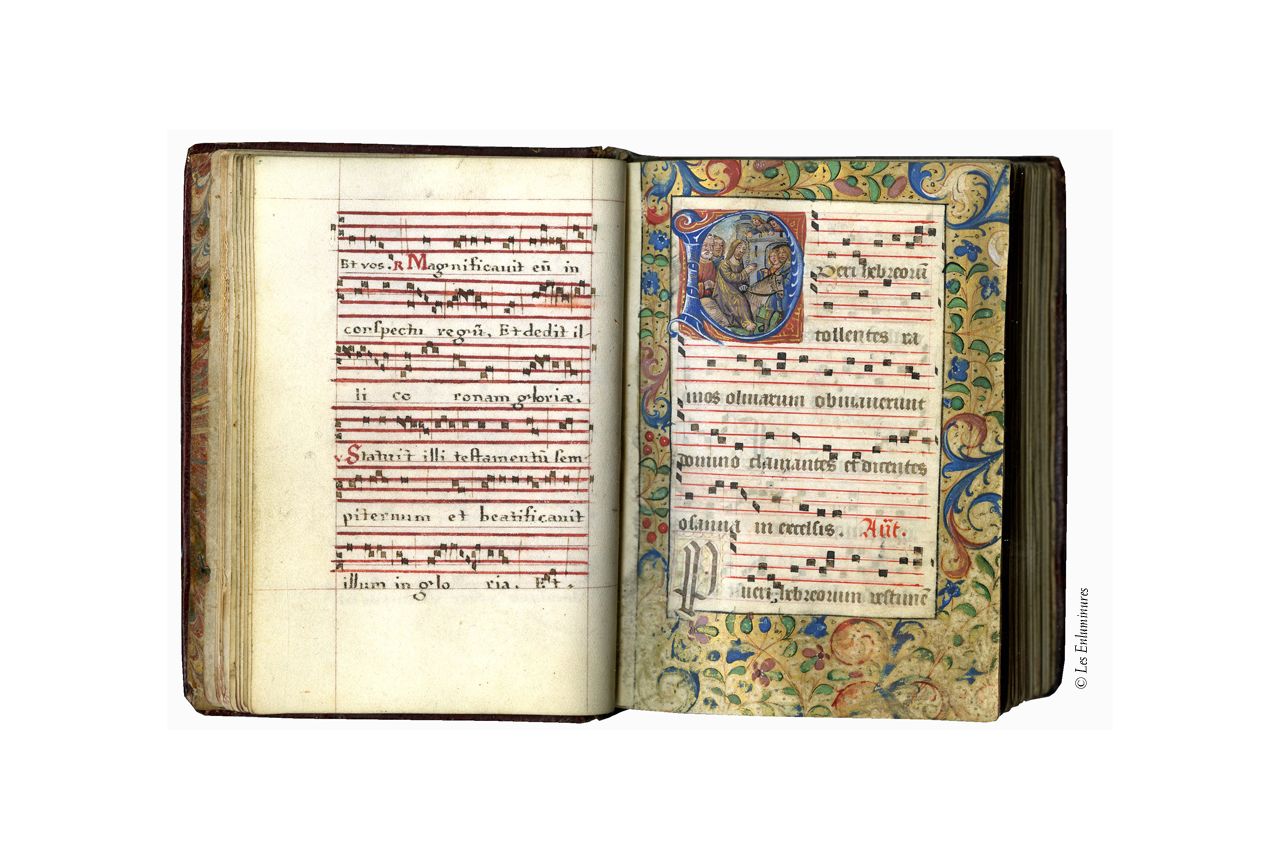 Et vos. R Magnificavit eũ in
conspectu regũ. Et dedit il-
li co ronam gloriæ.
v Statuit illi testamentũ sem-
piternum et beatificavit
illum in glo ria. Et.
Pueri hebreorũ
tollentes ra
mos olivarum obviaverunt
domino clamantes et dicentes
osanna in excelsis. Añt.
Pueri hebreorum vestimẽ
© Les Enluminures